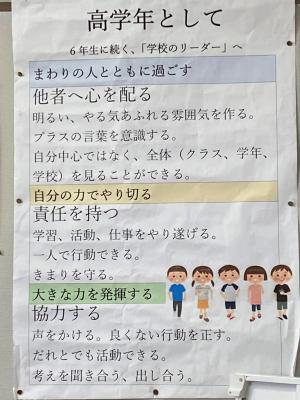 高学年として
6年生に続く、「学校のリーダー」へ
まわりの人とともに過ごす
他者へ心を配る
明るい、やる気あふれる雰囲気を作る。
プラスの言葉を意識する。
自分中心ではなく、全体（クラス、学年、
学校）を見ることができる。
自分の力でやり切る
責任を持つ
学習、活動、仕事をやり遂げる。
一人で行動できる。
きまりを守る。
大きな力を発揮する
協力する
声をかける。良くない行動を正す。
だれとでも活動できる。
考えを聞き合う、出し合う。